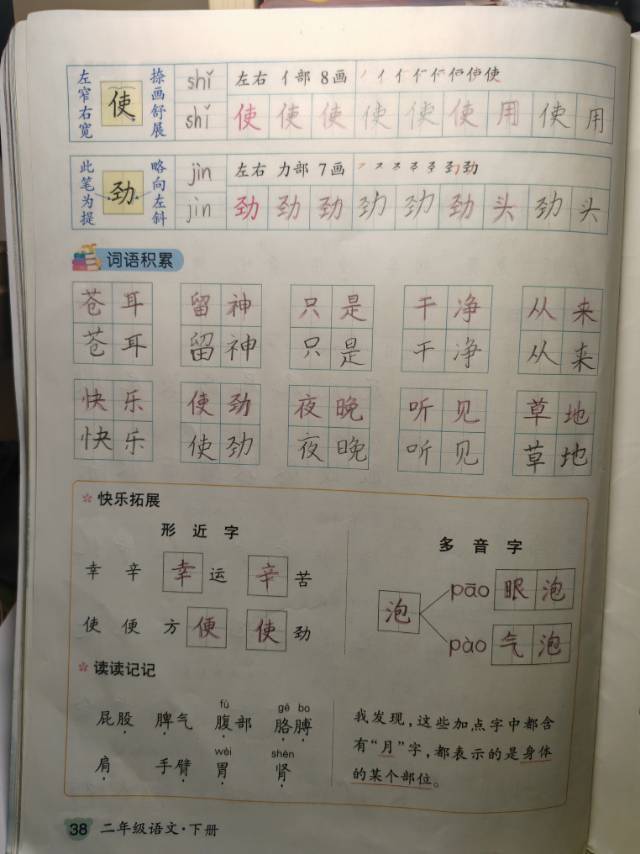 左窄右宽 使 捺画舒展 shǐ 左右 亻部 8画 丿亻亻亻亻使使使
shǐ 使 使 使 使 使 使 用 使 用
此笔为提 劲 略向左斜 jìn 左右 力部 7画
jìn 劲 劲 劲 劲 劲 劲 头 劲 头
词语积累
苍耳 留神 只是 干净 从来
苍耳 留神 只是 干净 从来
快乐 使劲 夜晚 听见 草地
快乐 使劲 夜晚 听见 草地
快乐拓展
形近字
幸 辛 幸运 辛苦
使 便 方便 使劲
多音字
泡 pāo 眼泡
pào 气泡
读读记记
fù gē bo
屁股 脾气 腹部 胳膊
wèi shèn
肩 手臂 胃 肾
我发现，这些加点字中都含
有“月”字，都表示的是身体
的某个部位。
38 二年级语文·下册